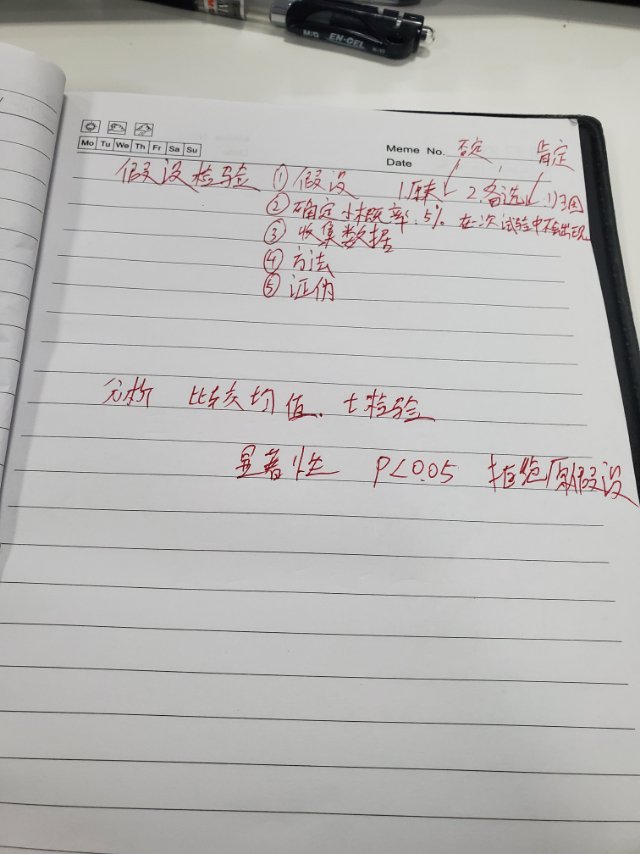 M/G EN-GEL
Mo Tu We Th Fr Sa Su
Meme No.
Date
否定 肯定
假设检验 ① 假设 1.原 2.备选
② 确定小概率.5% 在次试验中不会出现
③ 收集数据
④ 方法
⑤ 证伪
分析 比较均值. t检验
显著性 P<0.05 拒绝原假设